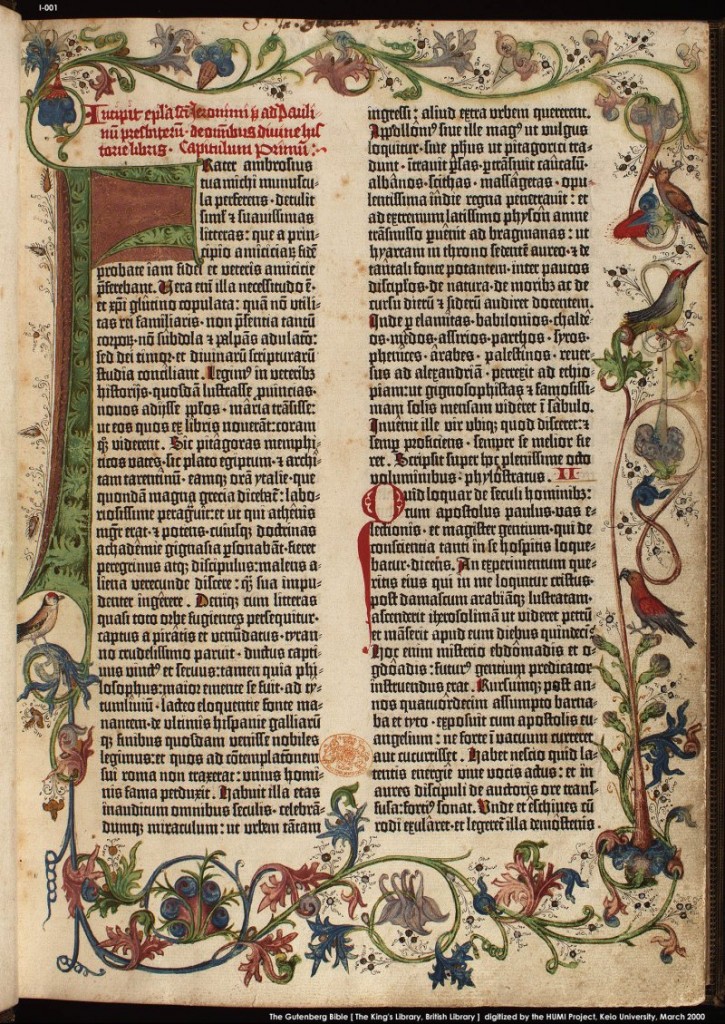 I-001
Incipit epla sci Jeronimi p̃ ad Pauli-
nũ presbiterũ · de omnibus divine his-
torie libris · Capitulum Primum :·
Frater ambrosius
tua michi munuscu-
la perferens · detulit
siml' et suavissimas
litteras: que a prin-
cipio amiciciarũ fidẽ
probate iam fidei et veteris amicicie
p̃ferebant. Vera enĩ illa necessitudo ẽ·
et xp̃i glutino copulata: quam nõ utili-
tas rei familiaris · non p̃sentia tantũ
corporũ · nõ subdola et palpãs adulatõ:
sed dei timor et divinarũ scripturarũ
studia conciliant. Legimꝰ in veteribꝫ
historijs · quosdã lustrasse ꝓvincias·
novos adijsse ppl̃os · maria trãsisse:
ut eos quos ex libris noverãt: coram
qꝫ viderent. Sic pitagoras memphi-
ticos vates · sic plato egiptum · et archi-
tam tarentinũ · eamqꝫ orã ytalie · que
quondã magna grecia dicebat̃: labo-
riosissime peragravit: ut qui athenis
mgr̃ erat · et potens · cuiusqꝫ doctrinas
achademie gignasia ꝑsonabãt · fieret
peregrinus atqꝫ discipulus: malens a-
liena verecunde discere: qꝫ sua impu-
denter ingerere. Deniqꝫ cum litteras
quasi toto orbe fugientes persequitur·
captus a piratis et venũdatus · tyran-
no crudelissimo paruit · ductus capti-
vus vinctꝰ et servus: tamen quia phi-
losophus: maior emente se fuit · ad ty-
tumliviũ · lacteo eloquentie fonte ma-
nantem · de ultimis hispanie galliarũ
qꝫ finibus quosdam venisse nobiles
legimus: et quos ad cõtemplationem
sui roma non traxerat: unius homi-
nis fama perduxit. Habuit illa etas
inauditum omnibus seculis · celebrã-
dumqꝫ miraculum: ut urbem tãtam
ingressi: aliud extra urbem quererent.
Apolloniꝰ sive ille magꝰ ut vulgus
loquitur · sive ph̃us ut pitagorici tra-
dunt · ĩtravit ꝑsas · ꝑtrãsivit caucasũ·
albãnos · scithas · massagetas · opu-
lentissima ĩndie regna penetravit: et
ad extremum latissimo physõn amne
trãsmisso ꝑvẽit ad bragmanas: ut
hyarcam in throno sedentẽ aureo · et de
tantali fonte potantem · inter paucos
discipl̃os · de natura · de moribꝫ ac de
cursu dierũ et siderũ audiret docentem.
Inde ꝑ elamitas · babilonios · chalde-
os · medos · assirios · parthos · syros·
phenices · ãrabes · palestinos · rever-
sus ad alexandriã · perrexit ad ethio-
piam: ut gignosophistas et famosissi-
mam solis mensam videret ĩ sabulo.
Invẽit ille vir ubiqꝫ quod disceret: et
semꝑ proficiens · semper se melior fie-
ret. Scripsit super hoc plenissime octo
voluminibus · phylostratus. II
Quid loquar de seculi hominibꝫ:
cum apostolus paulus · vas e-
lectionis · et magister gentium · qui de
conscientia tanti in se hospitis loque-
batur · dicẽs. An experimentum que-
ritis eius qui in me loquitur cristus·
post damascum arabiãqꝫ lustratam·
ascenderit iherosolimã ut videret petrũ
et mãserit apud eum diebus quindecĩ.
Hoc enim misterio ebdõmadis et o-
gdõadis: futurꝰ gentium predicator
instruendus erat. Rursumqꝫ post an-
nos quatuordecim assumpto barna-
ba et tyto · exposuit cum apostolis eu-
angelium: ne forte ĩ vacuum curreret
aut cucurrisset. Habet nescio quid la-
tentis energie vive vocis actus: et in
aures discipuli de auctoris ore trans-
fusa: fortiꝰ sonat. Unde et eschines cũ
rodi exularet · et legeret̃ illa demostenis·
The Gutenberg Bible [ The King's Library, British Library ] digitized by the HUMI Project, Keio University, March 2000